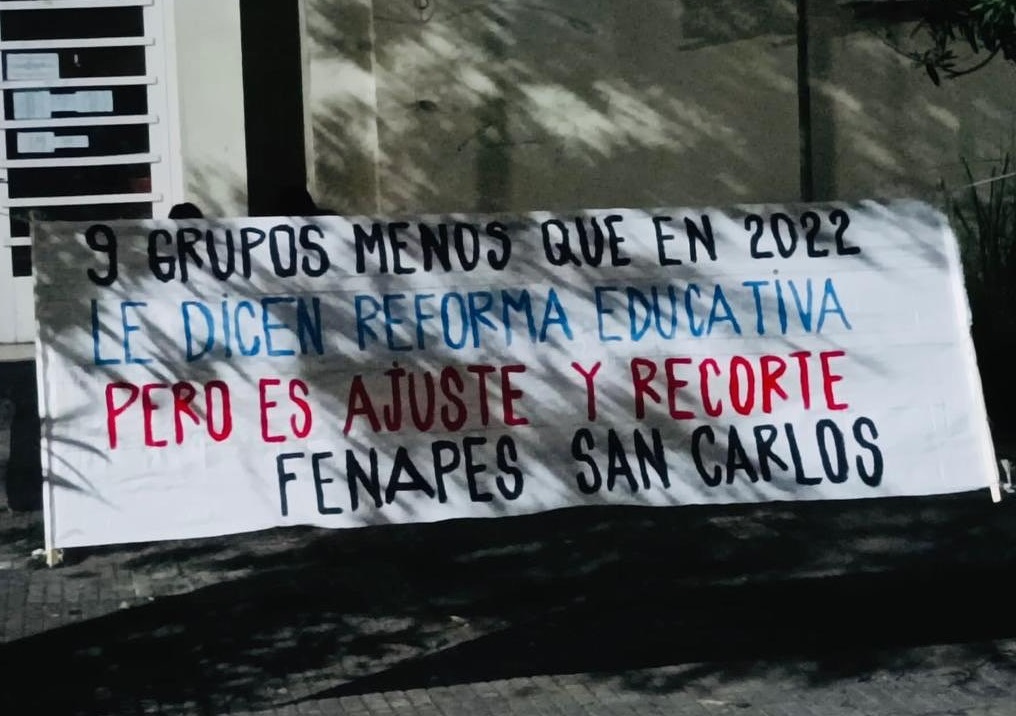 9 GRUPOS MENOS QUE EN 2022
LE DICEN REFORMA EDUCATIVA
PERO ES AJUSTE Y RECORTE
FENAPES SAN CARLOS